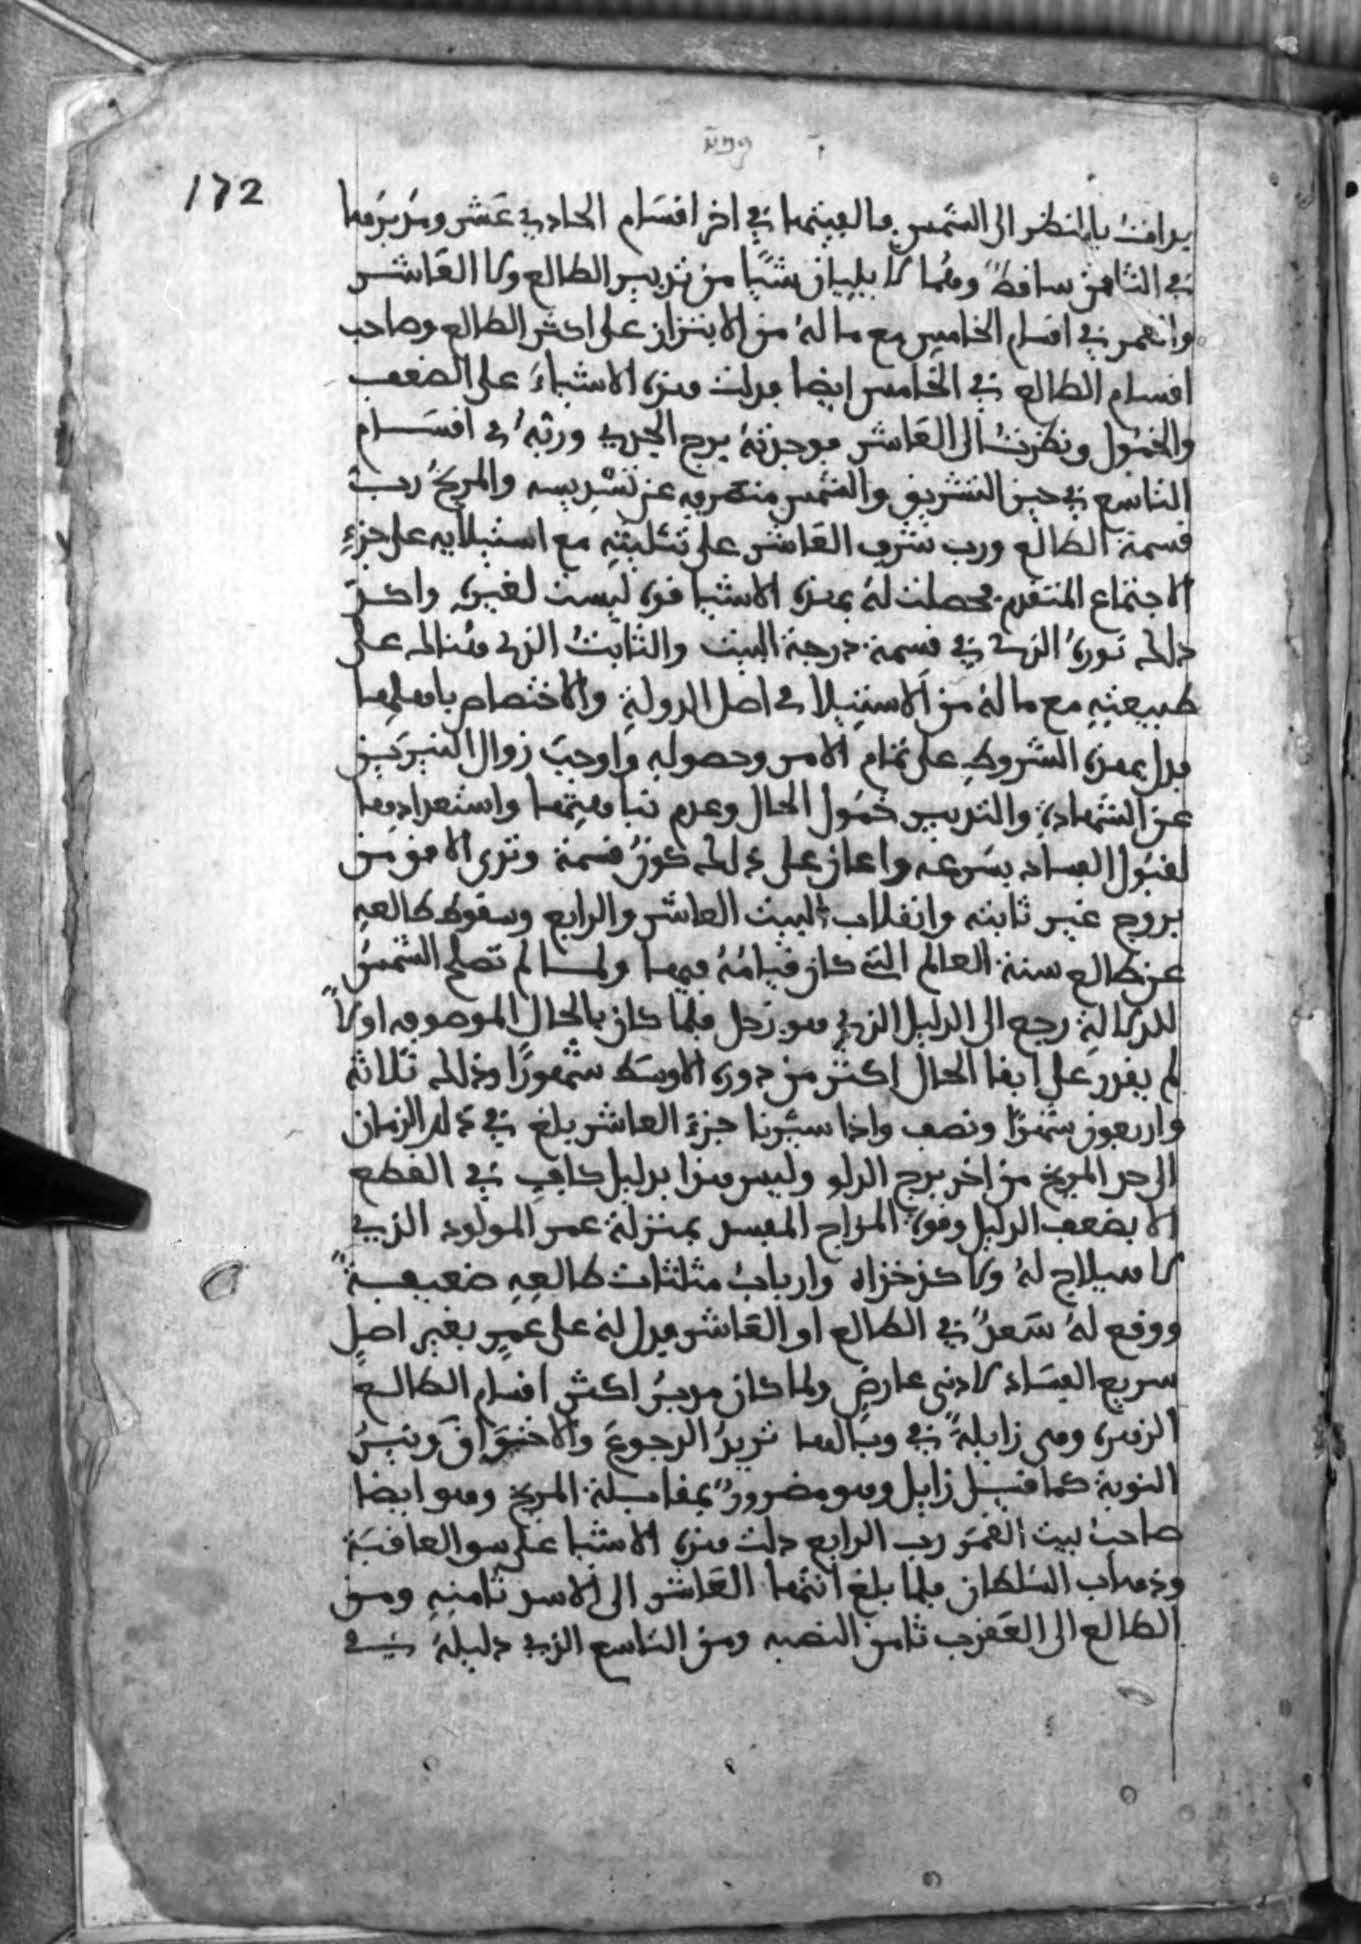 172
بدانت بالنظر الى الشمس فالفيتها في اخر اقسام الحادي عشر ومدبرها
في الثامن ساقط وهما لا يليان شيا من تدبير الطالع ولا العاشر
والقمر في اقسام الخامس مع ما له من الابتزاز على اكثر الطالع وصاحب
اقسام الطالع في الخامس ايضا فدلت هذه الاشياء على الضعف
والخمول ونظرت الى العاشر فوجدته برج الجدي وربه في اقسام
التاسع في حيز التشريق والشمس منصرفه عن تسديسه والمريخ رب
قسمة الطالع ورب شرف العاشر على تثليثه مع استيلايه على جزء
الاجتماع المتقدم فحصلت له بهذه الاشيا قوة ليست لغيره واكد
ذلك نوره الذي في قسمة درجة البيت والثابت الذي هنالك على
طبيعته مع ما له من الاستيلا في اصل الدولة والاختصاص باهلها
فدل بهذه الشروط على تمام الامر وحصوله واوجب زوال النيرين
عن الشهادة والتدبير خمول الحال وعدم نباهتها واستعدادها
لقبول الفساد بسرعه واعان على ذلك كون قسمة وتدي الافق من
بروج غير ثابته وانقلاب البيت العاشر والرابع وسقوط طالعه
عن طالع سنة العالم التي كان قيامه فيها ولما لم تصلح الشمس
للدلالة رجع الى الدليل الذي هو زحل فلما كان بالحال الموصوفه اولا
لم يقدر على ابقا الحال اكثر من دوره الاوسط شهورا وذلك ثلاثة
واربعون شهرا ونصف واذا سيرنا جزء العاشر بلغ في ذلك الزمان
الى حد المريخ من اخر برج الدلو وليس هذا بدليل كاف في القطع
الا بضعف الدليل وقوة المزاج المفسد بمنزلة عمر المولود الذي
لا هيلاج له ولا كذخذاه وارباب مثلثات طالعه ضعيفة
ووقع له سعد في الطالع او العاشر فدل له على عمر بغير اصل
سريع الفساد لادنى عارض ولما كان مدبر اكثر اقسام الطالع
الزهرة وهي زايلة في وبالها تريد الرجوع والاحتراق ونير
النوبة كما قيل زايل وهو مضرور بمقابلة المريخ وهو ايضا
صاحب بيت القمر رب الرابع دلت هذه الاشيا على سو العاقبة
وذهاب السلطان فلما بلغ انتها العاشر الى الاسد ثامنه ومن
الطالع الى العقرب ثامن النصبه ومن التاسع الذي دليله في